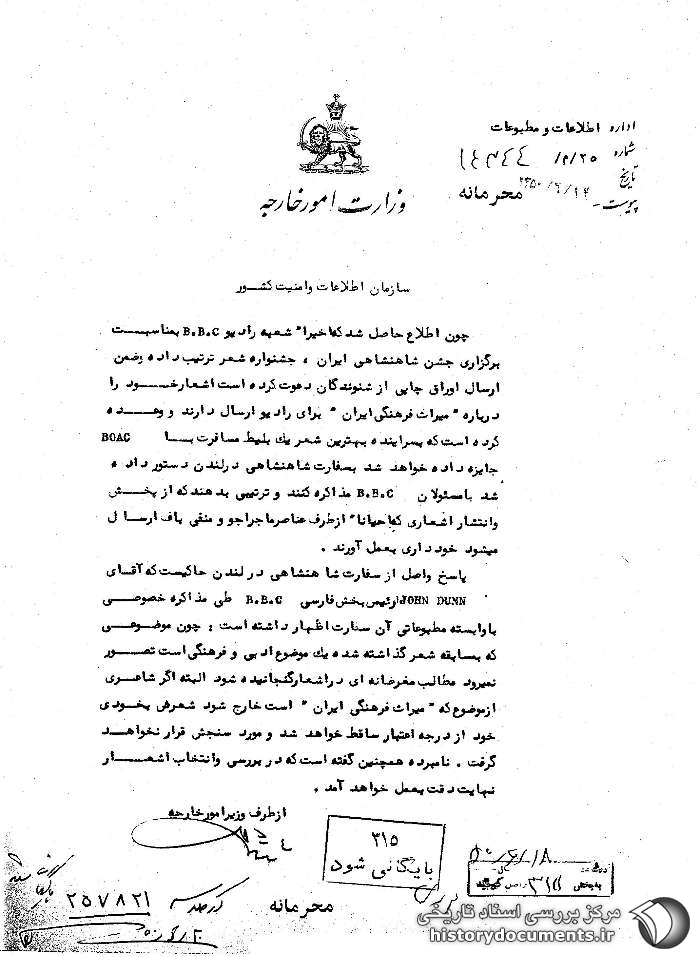 اداره اطلاعات و مطبوعات
شماره ۱۴۳۴۴ /م/۲۵
تاریخ
پیوست
محرمانه
وزارت امور خارجه
سازمان اطلاعات و امنیت کشور
چون اطلاع حاصل شد که اخیرا" شعبه رادیو B.B.C بمناسبت
برگزاری جشن شاهنشاهی ایران ، جشنواره شعر ترتیب داده وضمن
ارسال اوراق چاپی از شنوندگان دعوت کرده است اشعار خود را
درباره "میراث فرهنگی ایران" برای رادیو ارسال دارند و وعده
کرده است که بسراینده بهترین شعر یك بلیط مسافرت با BOAC
جایزه داده خواهد شد بسفارت شاهنشاهی درلندن دستور داده
شد بامسئولان B.B.C مذاکره کنند و ترتیبی بدهند که از پخش
وانتشار اشعاری که احیانا" ازطرف عناصر ماجراجو و منفی باف ارسال
میشود خودداری بعمل آورند .
پاسخ واصل از سفارت شاهنشاهی درلندن حاکیست که آقای
JOHN DUNN رئیس بخش فارسی B.B.C طی مذاکره خصوصی
باوابسته مطبوعاتی آن سفارت اظهار داشته است : چون موضوعی
که بمسابقه شعر گذاشته شده یك موضوع ادبی و فرهنگی است تصور
نمیرود مطالب مغرضانه ای دراشعار گنجانیده شود البته اگر شاعری
ازموضوع که "میراث فرهنگی ایران" است خارج شود شعرش بخودی
خود از درجه اعتبار ساقط خواهد شد و مورد سنجش قرار نخواهد
گرفت . نامبرده همچنین گفته است که در بررسی وانتخاب اشعار
نهایت دقت بعمل خواهد آمد .
ازطرف وزیر امور خارجه
۳۱۵
بایگانی شود
۵۰/۶/۱۸
۳۱۵
۲۵۷۸۲۱
محرمانه
مرکز بررسی اسناد تاریخی
historydocuments.ir